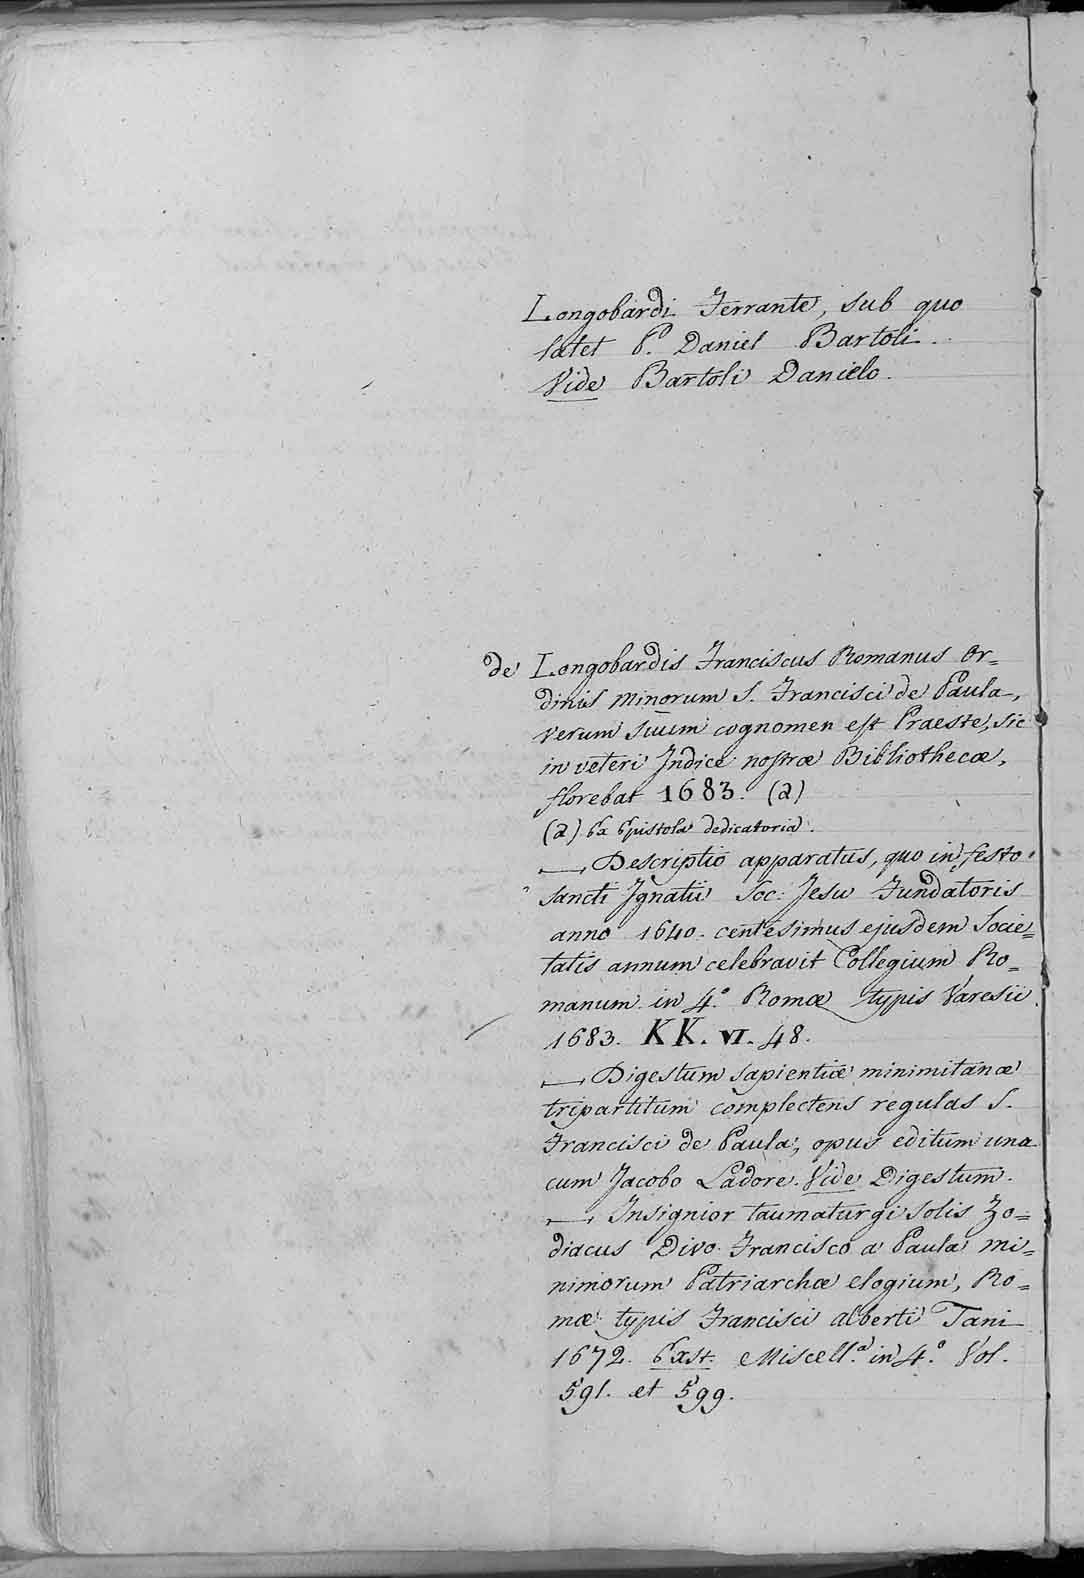 Longobardi Ferrante, sub quo
latet P. Daniel Bartoli.
Vide Bartoli Daniele.
de Longobardis Franciscus Romanus Or=
dinis minorum S. Francisci de Paula,
verum suum cognomen est Praeste, sic
in veteri Indice nostræ Bibliothecæ,
florebat 1683. (a)
(a) Ex Epistola dedicatoria.
— Descriptio apparatus, quo in festo
sancti Ignatii Soc: Jesu Fundatoris
anno 1640. centesimus ejusdem Socie=
tatis annum celebravit Collegium Ro=
manum in 4.º Romæ typis Varesii
1683. KK. VI. 48.
— Digestum sapientiæ minimitanæ
tripartitum complectens regulas S.
Francisci de Paula, opus editum una
cum Jacobo Ladore. Vide Digestum.
— Insignior taumaturgi solis Zo=
diacus Divo Francisco a Paula mi=
nimorum Patriarchæ elogium, Ro=
mæ typis Francisci alberti Tani
1672. Exst. Miscell.ª in 4.º Vol.
591. et 599.